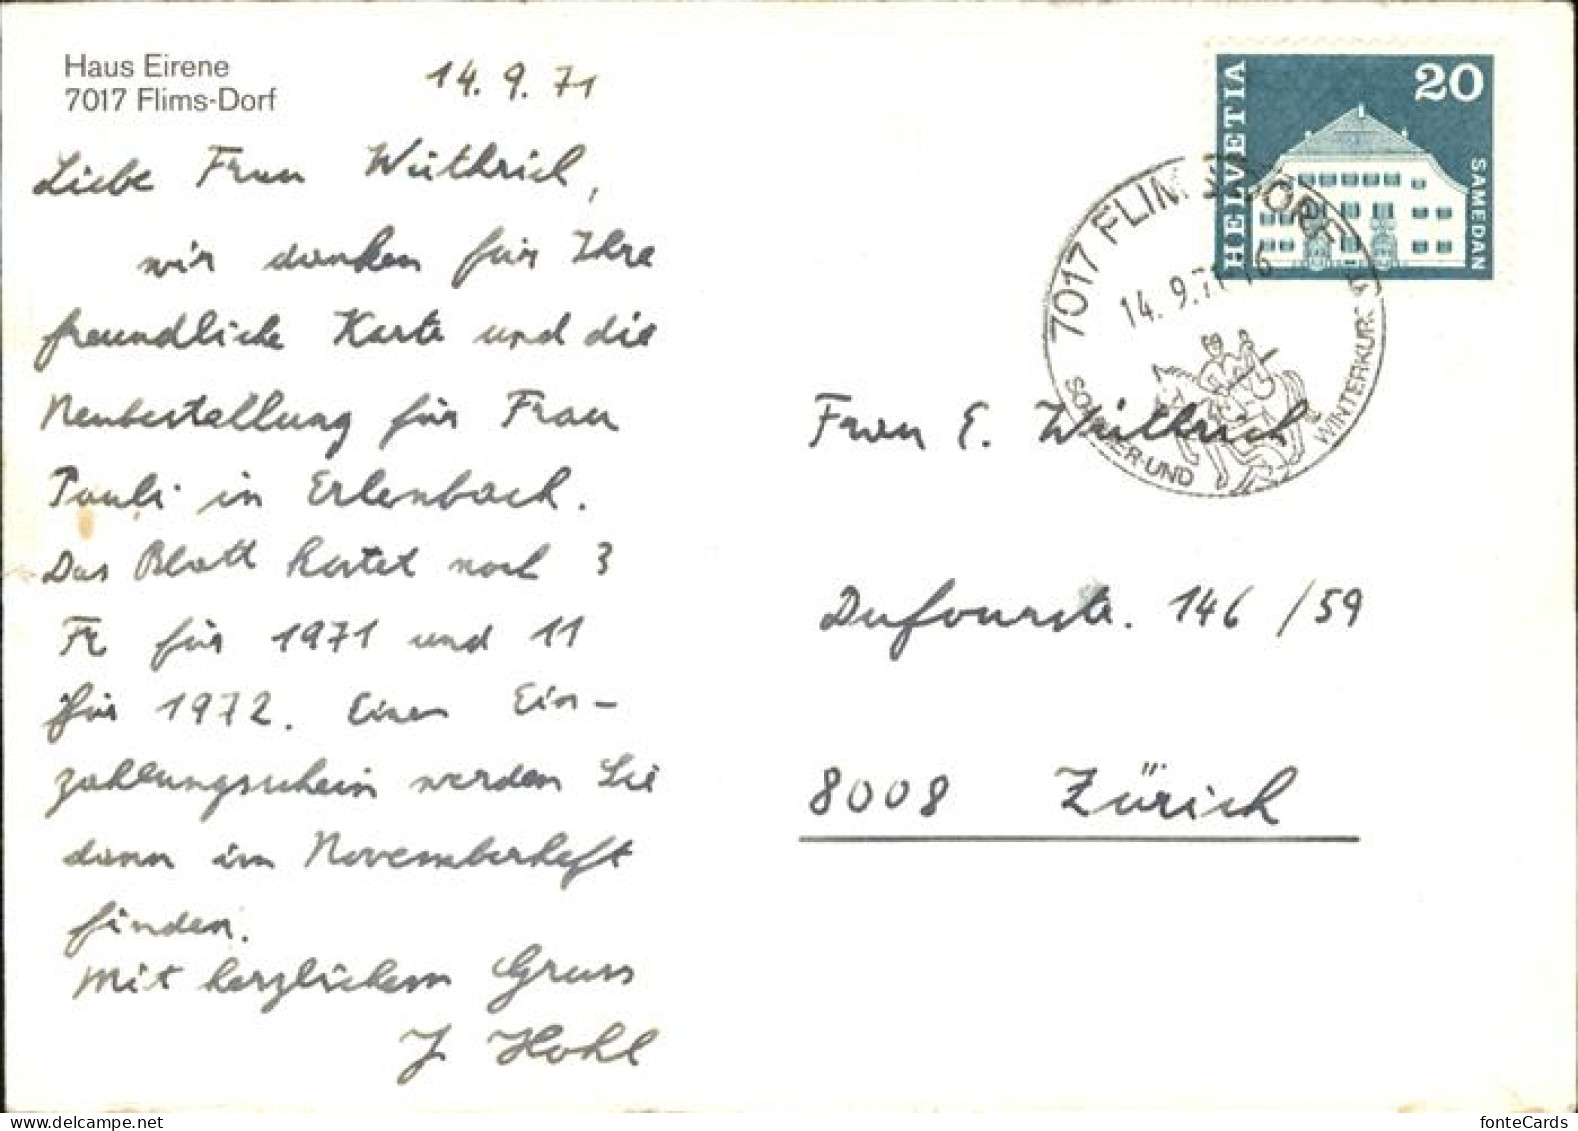 Haus Eirene
7017 Flims-Dorf
14. 9. 71
Liebe Frau Wüthrich,
wir danken für Ihre
freundliche Karte und die
Neubestellung für Frau
Pauli in Erlenbach.
Das Blatt kostet noch 3
Fr für 1971 und 11
für 1972. Einen Ein-
zahlungsschein werden Sie
dann im Novemberheft
finden.
Mit herzlichem Gruss
J. Hohl
HELVETIA
20
SAMEDAN
7017 FLIMS DORF
14. 9. 71 16
SOMMER-UND
WINTERKURORT
Frau E. Wüthrich
Dufourstr. 146 /59
8008 Zürich
fonteCards